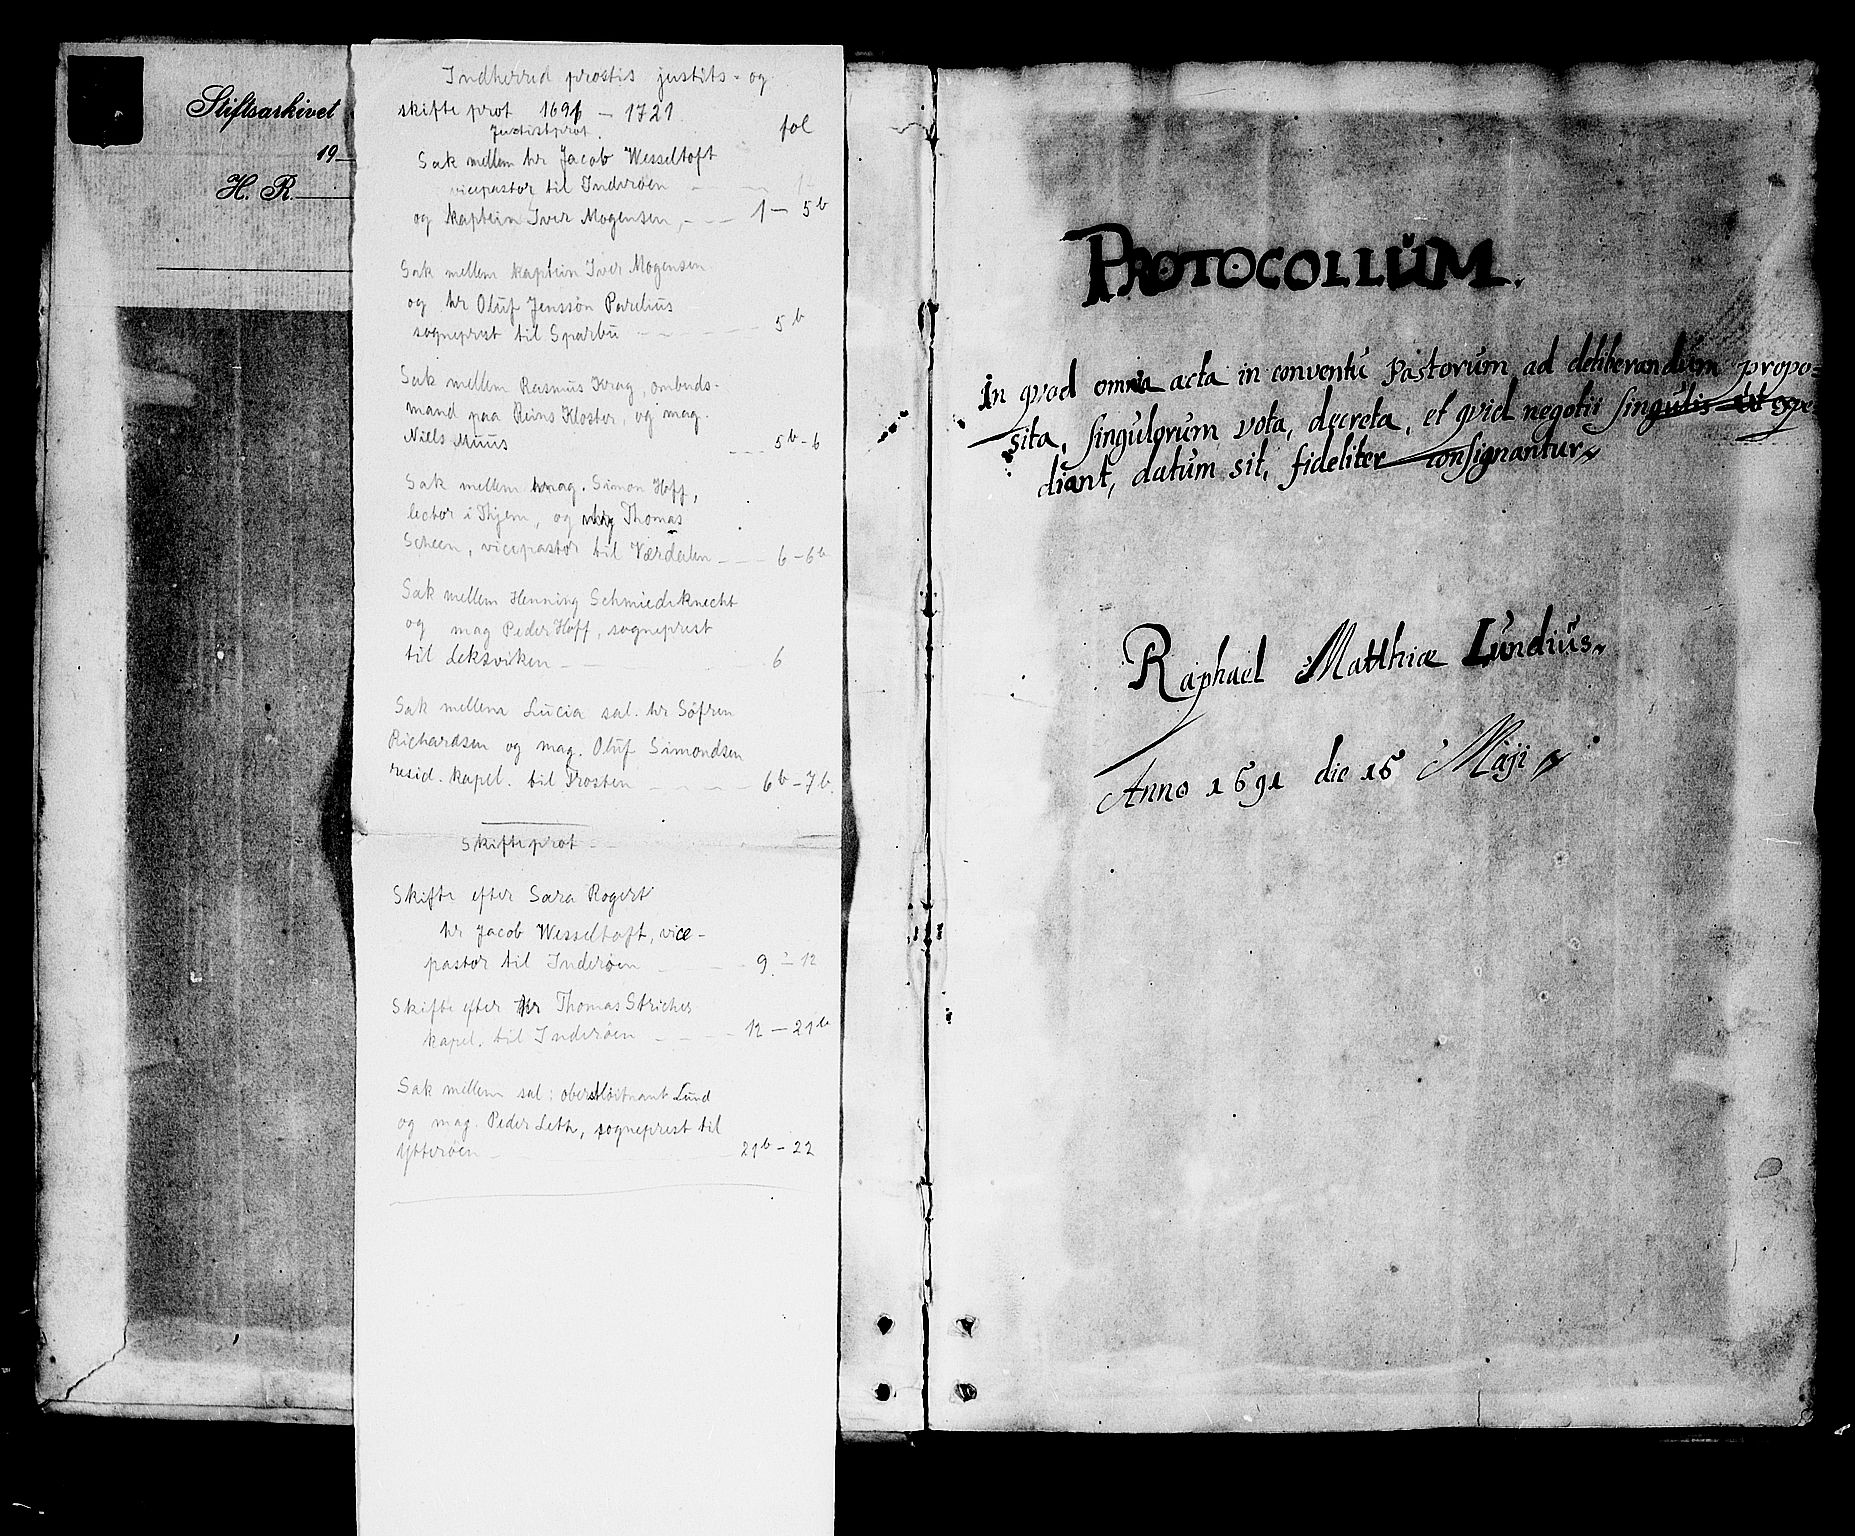 Stiftsarkivet
19
H. R.
Indherred prostis justits- og
skifte prot 1691 — 1721
Justistprot. fol
Sak mellem hr Jacob Wesseltoft
vicepastor til Inderøen
og kaptein Iver Mogensen, 1 — 5b
Sak mellem kaptein Iver Mogensen
og hr Oluf Jenssøn Parelius
sogneprest til Sparbu 5b
Sak mellem Rasmus Krag, ombuds-
mand paa Reins Kloster, og mag.
Niels Muus 5b-6
Sak mellem mag. Simon Hoff,
lector i Thjem, og Thomas
Scheen, vicepastor til Værdalen 6-6b
Sak mellem Henning Schmiedeknecht
og mag Peder Hoff, sogneprest
til Leksviken 6
Sak mellem Lucia sal. hr Søfren
Richardsen og mag. Oluf Simondsen
resid. kapel. til Frosten 6b-7b.
Skifteprot
Skifte efter Sara Rogert
hr Jacob Wesseltoft, vice-
pastor til Inderøen 9 - 12
Skifte efter hr Thomas Stricher
kapel. til Inderøen 12 — 21b
Sak mellem sal: oberstløitnant Lund
og mag. Peder Leth, sogneprest til
Ytterøen 21b - 22
PROTOCOLLŬM.
In qvod omnia acta in conventu Pastorum ad deliberandum propo=
sita, singulorum vota, decreta, et qvid negotii singulis ut expe
diant, datum sit, fideliter consignantur
Raphael Matthiæ Lundius
Anno 1691 die 15 Maji